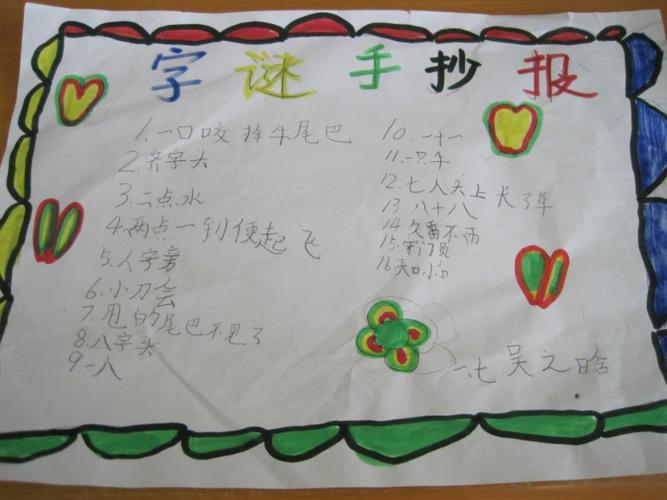 字谜手抄报
1.一口咬掉牛尾巴
2.齐字头
3.二点水
4.两点一到便起飞
5.人字旁
6.小刀会
7.甩的尾巴不见了
8.八字头
9.一人
10.一十一
11.一只牛
12.七人头上长了草
13 八十八
14 久雷不雨
15.守门员
16 天口小白
一、七 吴之晗